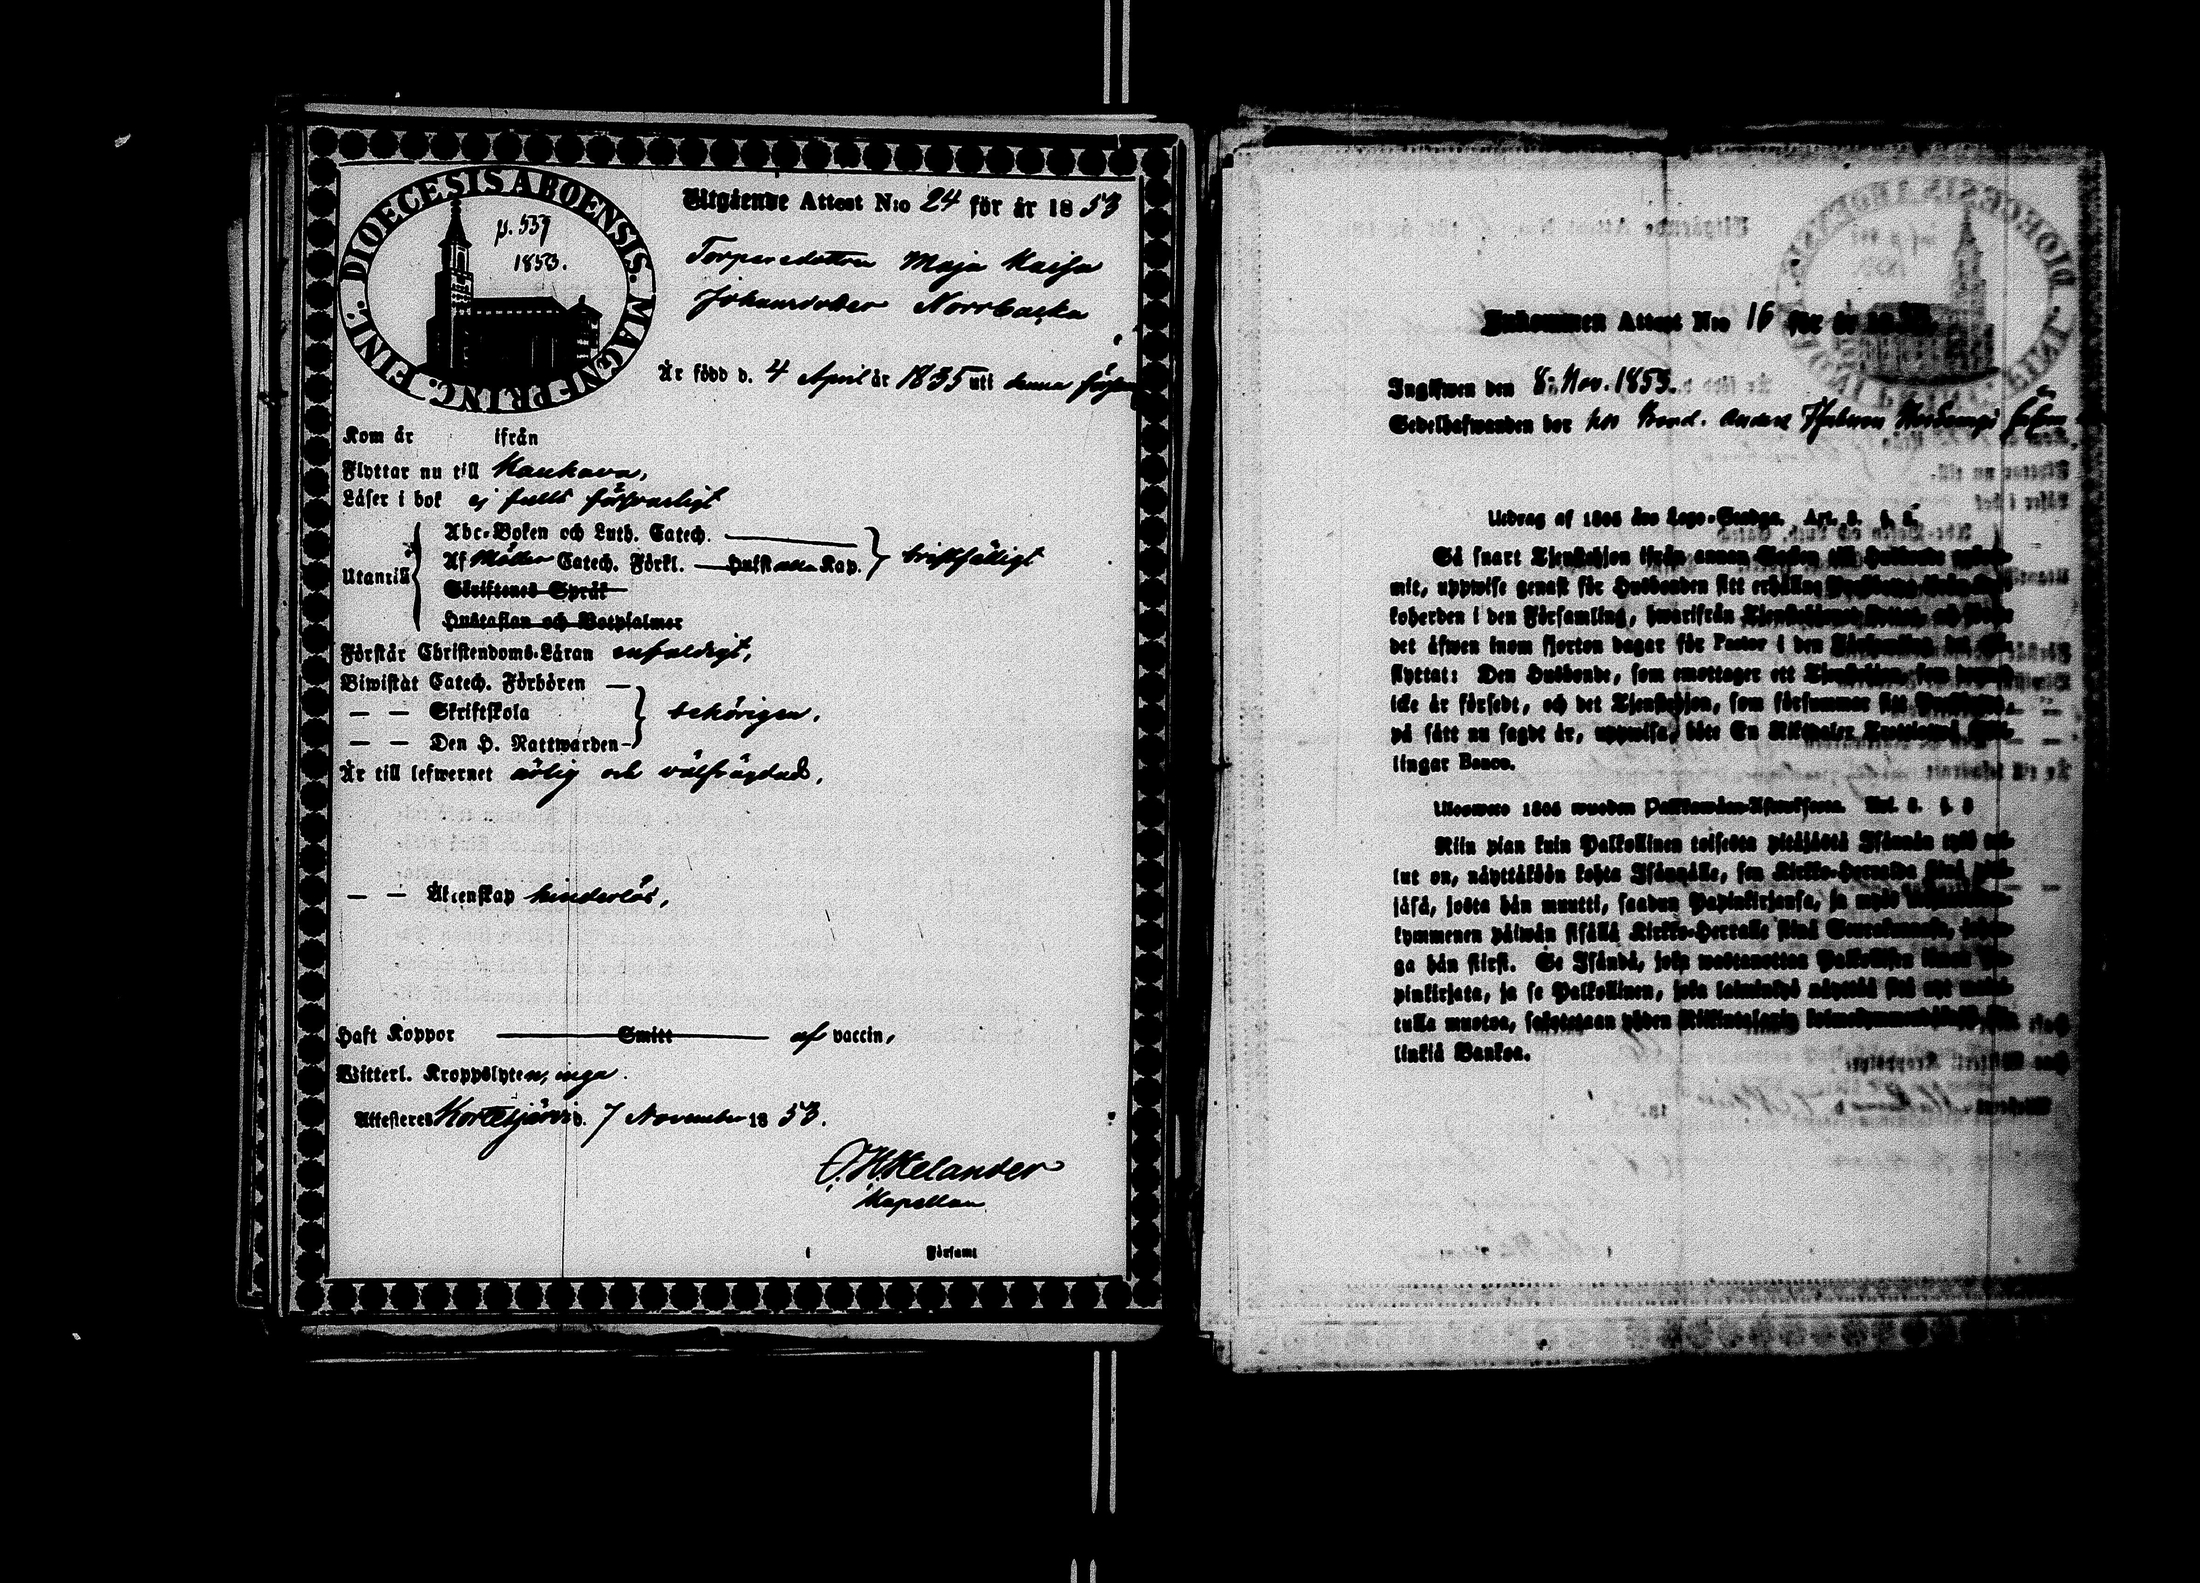 DIOECESIS ABOENSIS. MAG. PRINC. FINL.
p. 537
1853.
Utgående Attest N:o 24 för år 1853
Torparedottren Maja Kaisa
Johansdotter Norrbacka
Är född d. 4 April år 1835 uti denna förs
Kom år ifrån
Flyttar nu till Kauhava,
Läser i bok ej fullt försvarligt
Utantill
Abc-Boken och Luth. Catech.
Af Möller Catech. Förkl. — Hulst alla Kap. bristfälligt
Skriftenes Språk
Hustaflan och Botpsalmer
Förstår Christendoms-Läran enfaldigt,
Biwistat Catech. Förhören —
— — Skriftskola behörigen.
— — Den H. Nattwarden
Är till lefwernet ärlig och välfrägdad,
— — Äktenskap hinderlös,
Haft Koppor Smitt af vaccin,
Witterl. Kroppslyten, inga.
Attesteres Kortesjärvi d. 7 November 1853.
Helander
Kapellan
i Församl
Inkommen Attest N:o 16 för år
Ingifwen den 8. Nov. 1853.
Sedelhafwanden bor hos Bond. Anders
Utdrag af 1805 års Lego-Stadga. Art. 8. §. 8.
Så snart Tjenstehjon ifrån annan Socken till Husbonde
mit, uppwise genast för Husbonden sitt erhållne
koherden i den Församling, hwarifrån Tjenstehjonet flyttat, och
det äfwen inom fjorton dagar för Pastor i den Församling,
flyttat: Den Husbonde, som emottager ett Tjenstehjon, som
icke är försedt, och det Tjenstehjon, som försummar sitt
på sätt nu sagdt är, uppwisa, böte En Riksdaler
lingar Banco.
Wuowen 1805 wuoden Palkkawäen-Asetuksesta. Art. 8. §. 8
Niin pian kuin Palkollinen toisesta pitäjästä Isännän tygö
lut on, näyttäköön kohta Isännälle, sen Kirkko-Herralda siinä
jäsä, josta hän muutti, saadun Papinkirjansa, ja myös
kymmenen päiwän sisällä Kirkko-Herralle siinä Seurakunnassa,
ga hän siirsi. Se Isändä, joka wastanottaa Palkollisen ilman
pinkirjata, ja se Palkollinen, joka laiminlyö näyttää sitä nyt
tulla muotoa, sakotetaan yhden Riikintalarin
linkiä Bankoa.